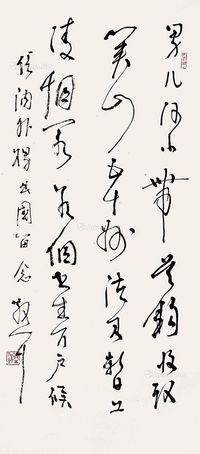 男儿何不帶吴鈎收取
关山五十州请君暫上
凌烟阁若個书生万户候
國留念